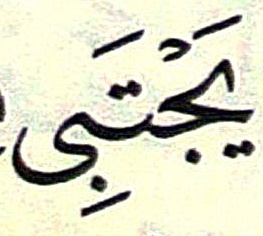 يَجْتَبِى